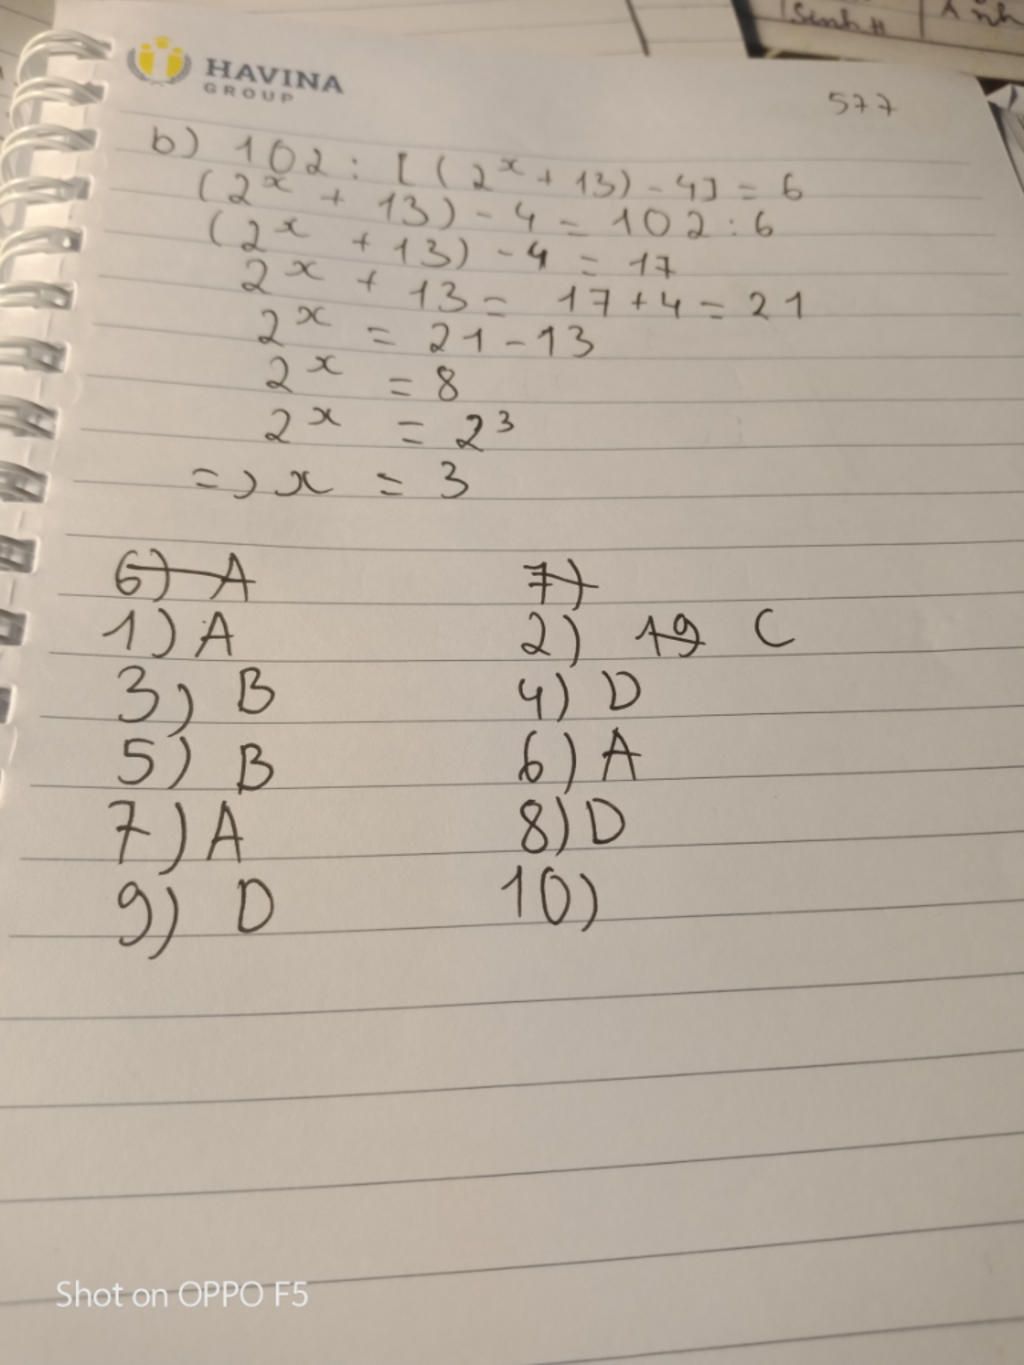 Sinh H
Ảnh
HAVINA
GROUP
577
b) 102 : [(2^x + 13) - 4] = 6
(2^x + 13) - 4 = 102 : 6
(2^x + 13) - 4 = 17
2^x + 13 = 17 + 4 = 21
2^x = 21 - 13
2^x = 8
2^x = 2^3
=> x = 3
6) A 7)
1) A 2) 19 C
3) B 4) D
5) B 6) A
7) A 8) D
9) D 10)
Shot on OPPO F5